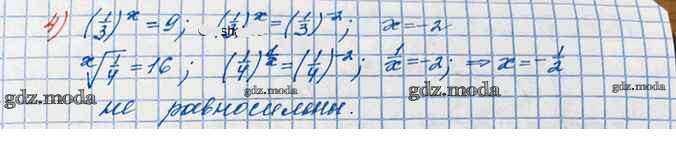 4) (1/3)^x = 9; (1/3)^x = (1/3)^-2; x = -2
ˣ√(1/4) = 16; (1/4)^(1/x) = (1/4)^-2; 1/x = -2; ⇒ x = -1/2
gdz.moda gdz.moda gdz.moda
не равносильны.